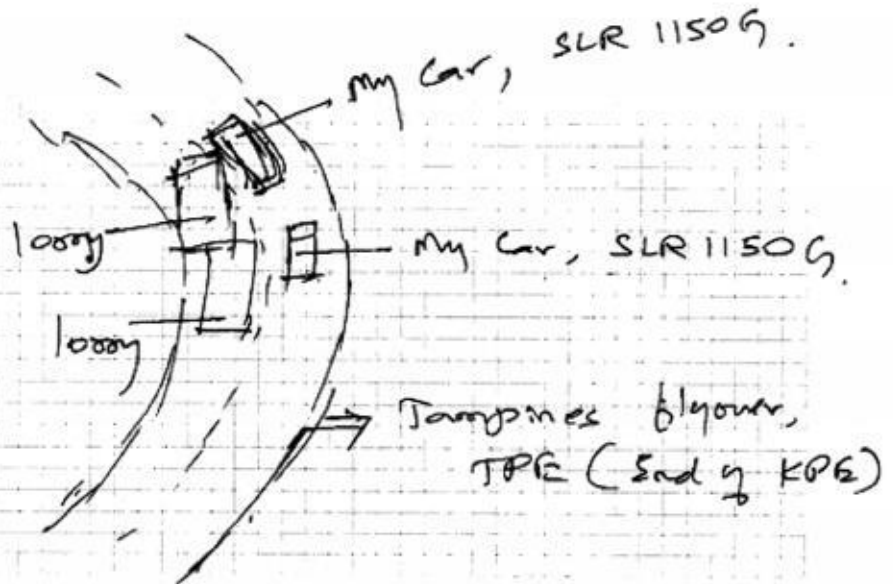 My Car, SLR 1150G.
lorry
My Car, SLR 1150G.
lorry
Tampines flyover,
TPE (End of KPE)